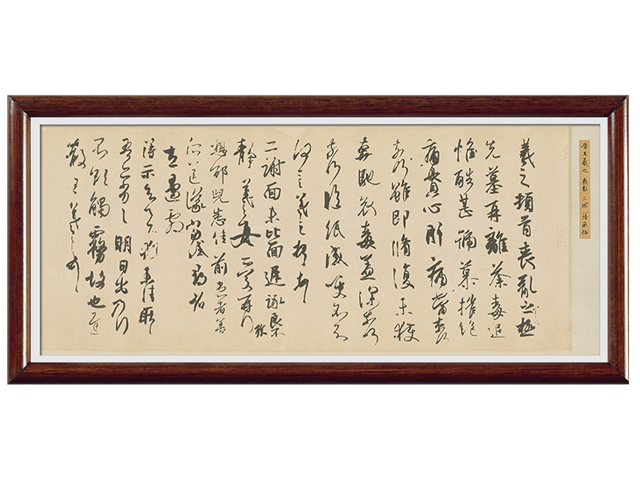 晉王羲之喪亂二謝得示帖
羲之頓首喪亂之極
先墓再離荼毒追
惟酷甚號慕摧絕
痛貫心肝痛當奈何
奈何雖即脩復未獲
奔馳哀毒益深奈何
奈何臨紙感哽不知
何言羲之頓首頓首
二謝面未比面遲詠良不
靜羲之女愛再拜
想邵兒悉佳前患者善
所送議當試尋省
左邊劇
得示知足下猶未佳耿
耿吾亦劣劣明日出乃行
不欲觸霧故也遲
散王羲之頓首